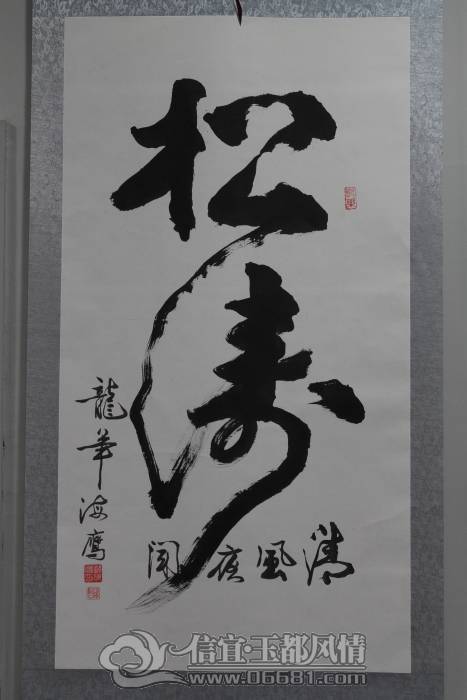 松涛
清风
龍華海鹰
信宜·玉都风情
www.06681.com